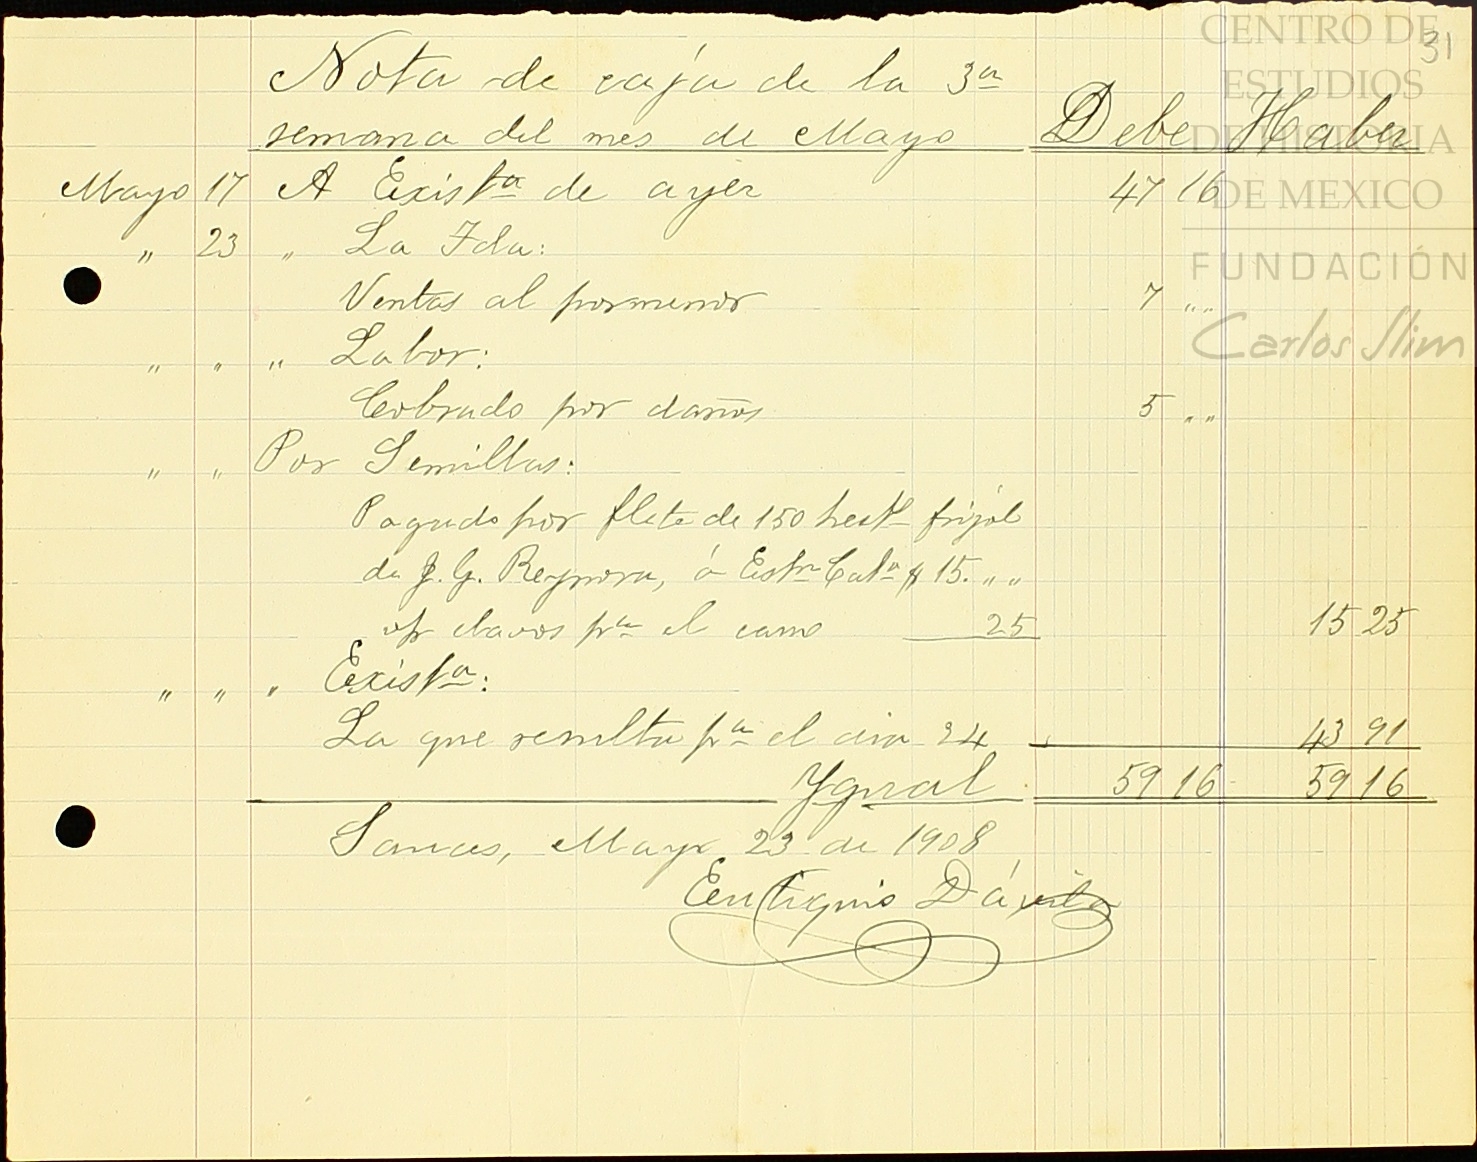 31
Nota de caja de la 3a
semana del mes de Mayo Debe Haber
Mayo 17 A Exista de ayer 47 16
" 23 " La Fda:
Ventas al pormenor 7 " "
" " " Labor:
Cobrado por daños 5 " "
" " Por Semillas:
Pagado por flete de 150 hectl frijol
de J. G. Reynosa, á Estn Cata $ 15. " "
clavos pa el carro 25 15 25
" " " Exista:
La que resulta pa el dia 24 43 91
Ygual 59 16 59 16
Sauces, Mayo 23 de 1908
Eutiquio Dávila
CENTRO DE
ESTUDIOS
DE HISTORIA
DE MEXICO
FUNDACIÓN
Carlos Slim